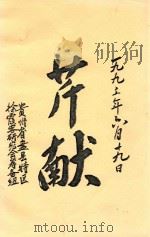 一九九年六月十九日
芹献
贵州省盘县特区
徐霞客研究会筹备组